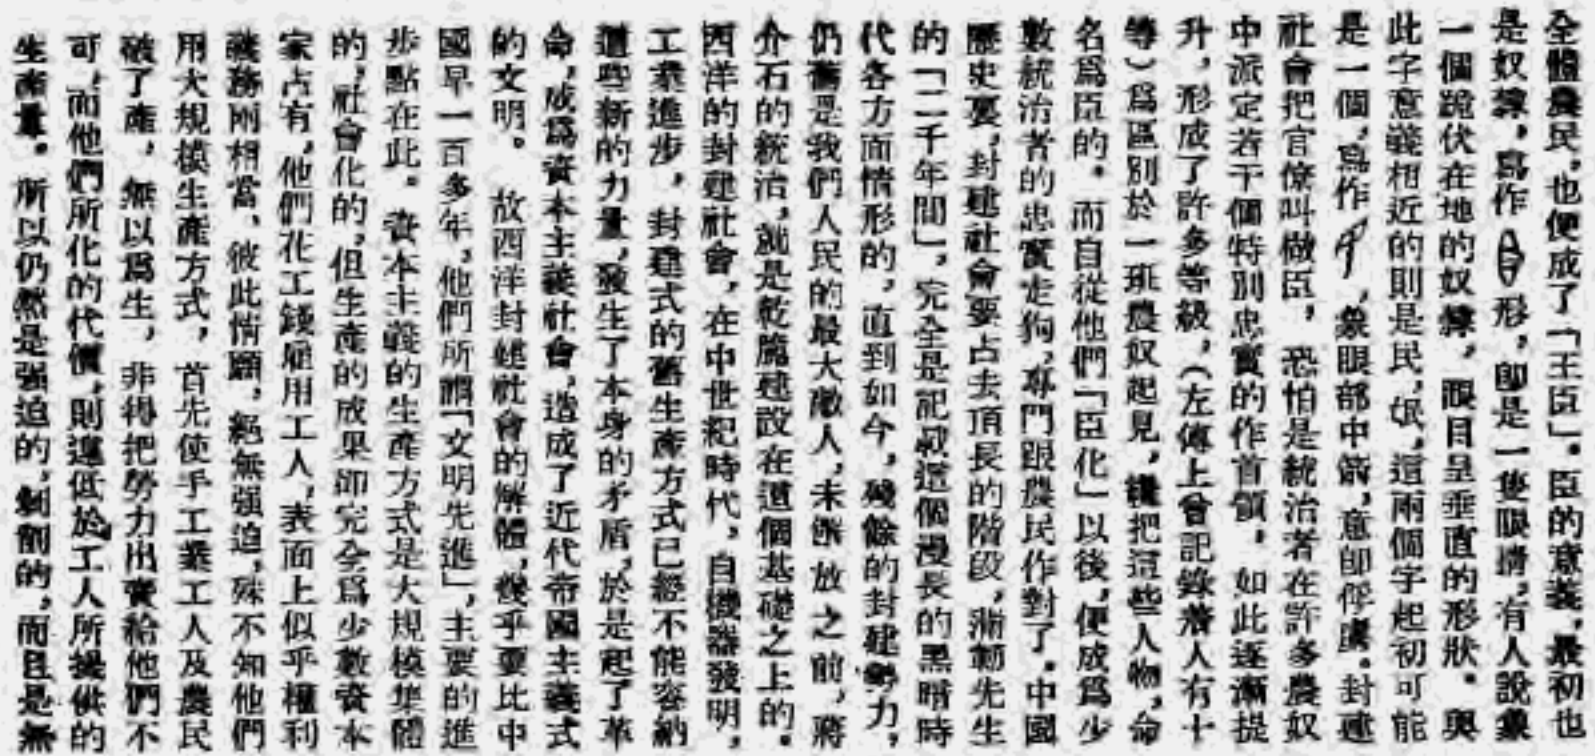 全體農民，也便成了「王臣」。臣的意義，最初也
是奴隸，寫作形，卽是一隻眼睛，有人說象
一個跪伏在地的奴隸，眼目呈垂直的形狀。與
此字意義相近的則是民，氓，這兩個字起初可能
是一個，寫作，象眼部中箭，意卽俘虜。封建
社會把官僚叫做臣，恐怕是統治者在許多農奴
中派定若干個特別忠實的作首領，如此逐漸提
升，形成了許多等級，（左傳上曾記錄著人有十
等）爲區別於一班農奴起見，纔把這些人物，命
名爲臣的。而自從他們「臣化」以後，便成爲少
數統治者的忠實走狗，專門跟農民作對了。中國
歷史裏，封建社會要占去頂長的階段，淅勷先生
的「二千年間」，完全是記敍這個漫長的黑暗時
代各方面情形的，直到如今，殘餘的封建勢力，
仍舊是我們人民的最大敵人，未解放之前，蔣
介石的統治，就是乾脆建設在這個基礎之上的。
西洋的封建社會，在中世紀時代，自機器發明，
工業進步，封建式的舊生產方式已經不能容納
這些新的力量，發生了本身的矛盾，於是起了革
命，成爲資本主義社會，造成了近代帝國主義式
的文明。故西洋封建社會的解體，幾乎要比中
國早一百多年，他們所謂「文明先進」，主要的進
步點在此。資本主義的生產方式是大規模集體
的，社會化的，但生產的成果卻完全爲少數資本
家占有，他們花工錢雇用工人，表面上似乎權利
義務兩相當，彼此情願，絕無强迫，殊不知他們
用大規模生產方式，首先使手工業工人及農民
破了產，無以爲生，非得把勞力出賣給他們不
可，而他們所化的代價，則遠低於工人所提供的
生產量。所以仍然是强迫的，剝削的，而且是無